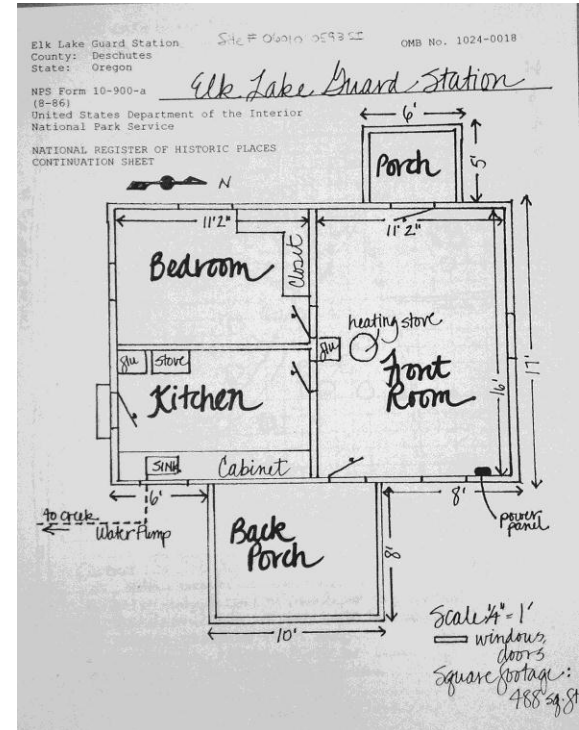 Elk Lake Guard Station
County: Deschutes
State: Oregon
Site # 06010 05935I
OMB No. 1024-0018
NPS Form 10-900-a
(8-86)
United States Department of the Interior
National Park Service
Elk Lake Guard Station
NATIONAL REGISTER OF HISTORIC PLACES
CONTINUATION SHEET
N
6'
Porch
5'
11'2"
11'2"
Bedroom
Closet
heating stove
flu
stove
flu
Kitchen
Front
Room
16'
17'
SINK
Cabinet
6'
8'
power
panel
to creek
Water Pump
Back
Porch
8'
10'
Scale 1/4" = 1'
windows,
doors
Square footage:
488 sq. ft